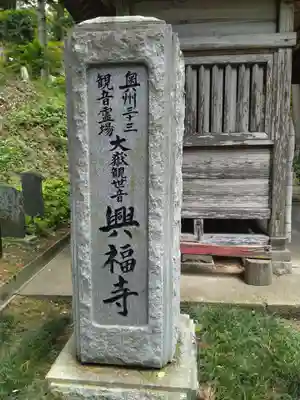 奥州三十三
観音霊場
大嶽観世音
興福寺